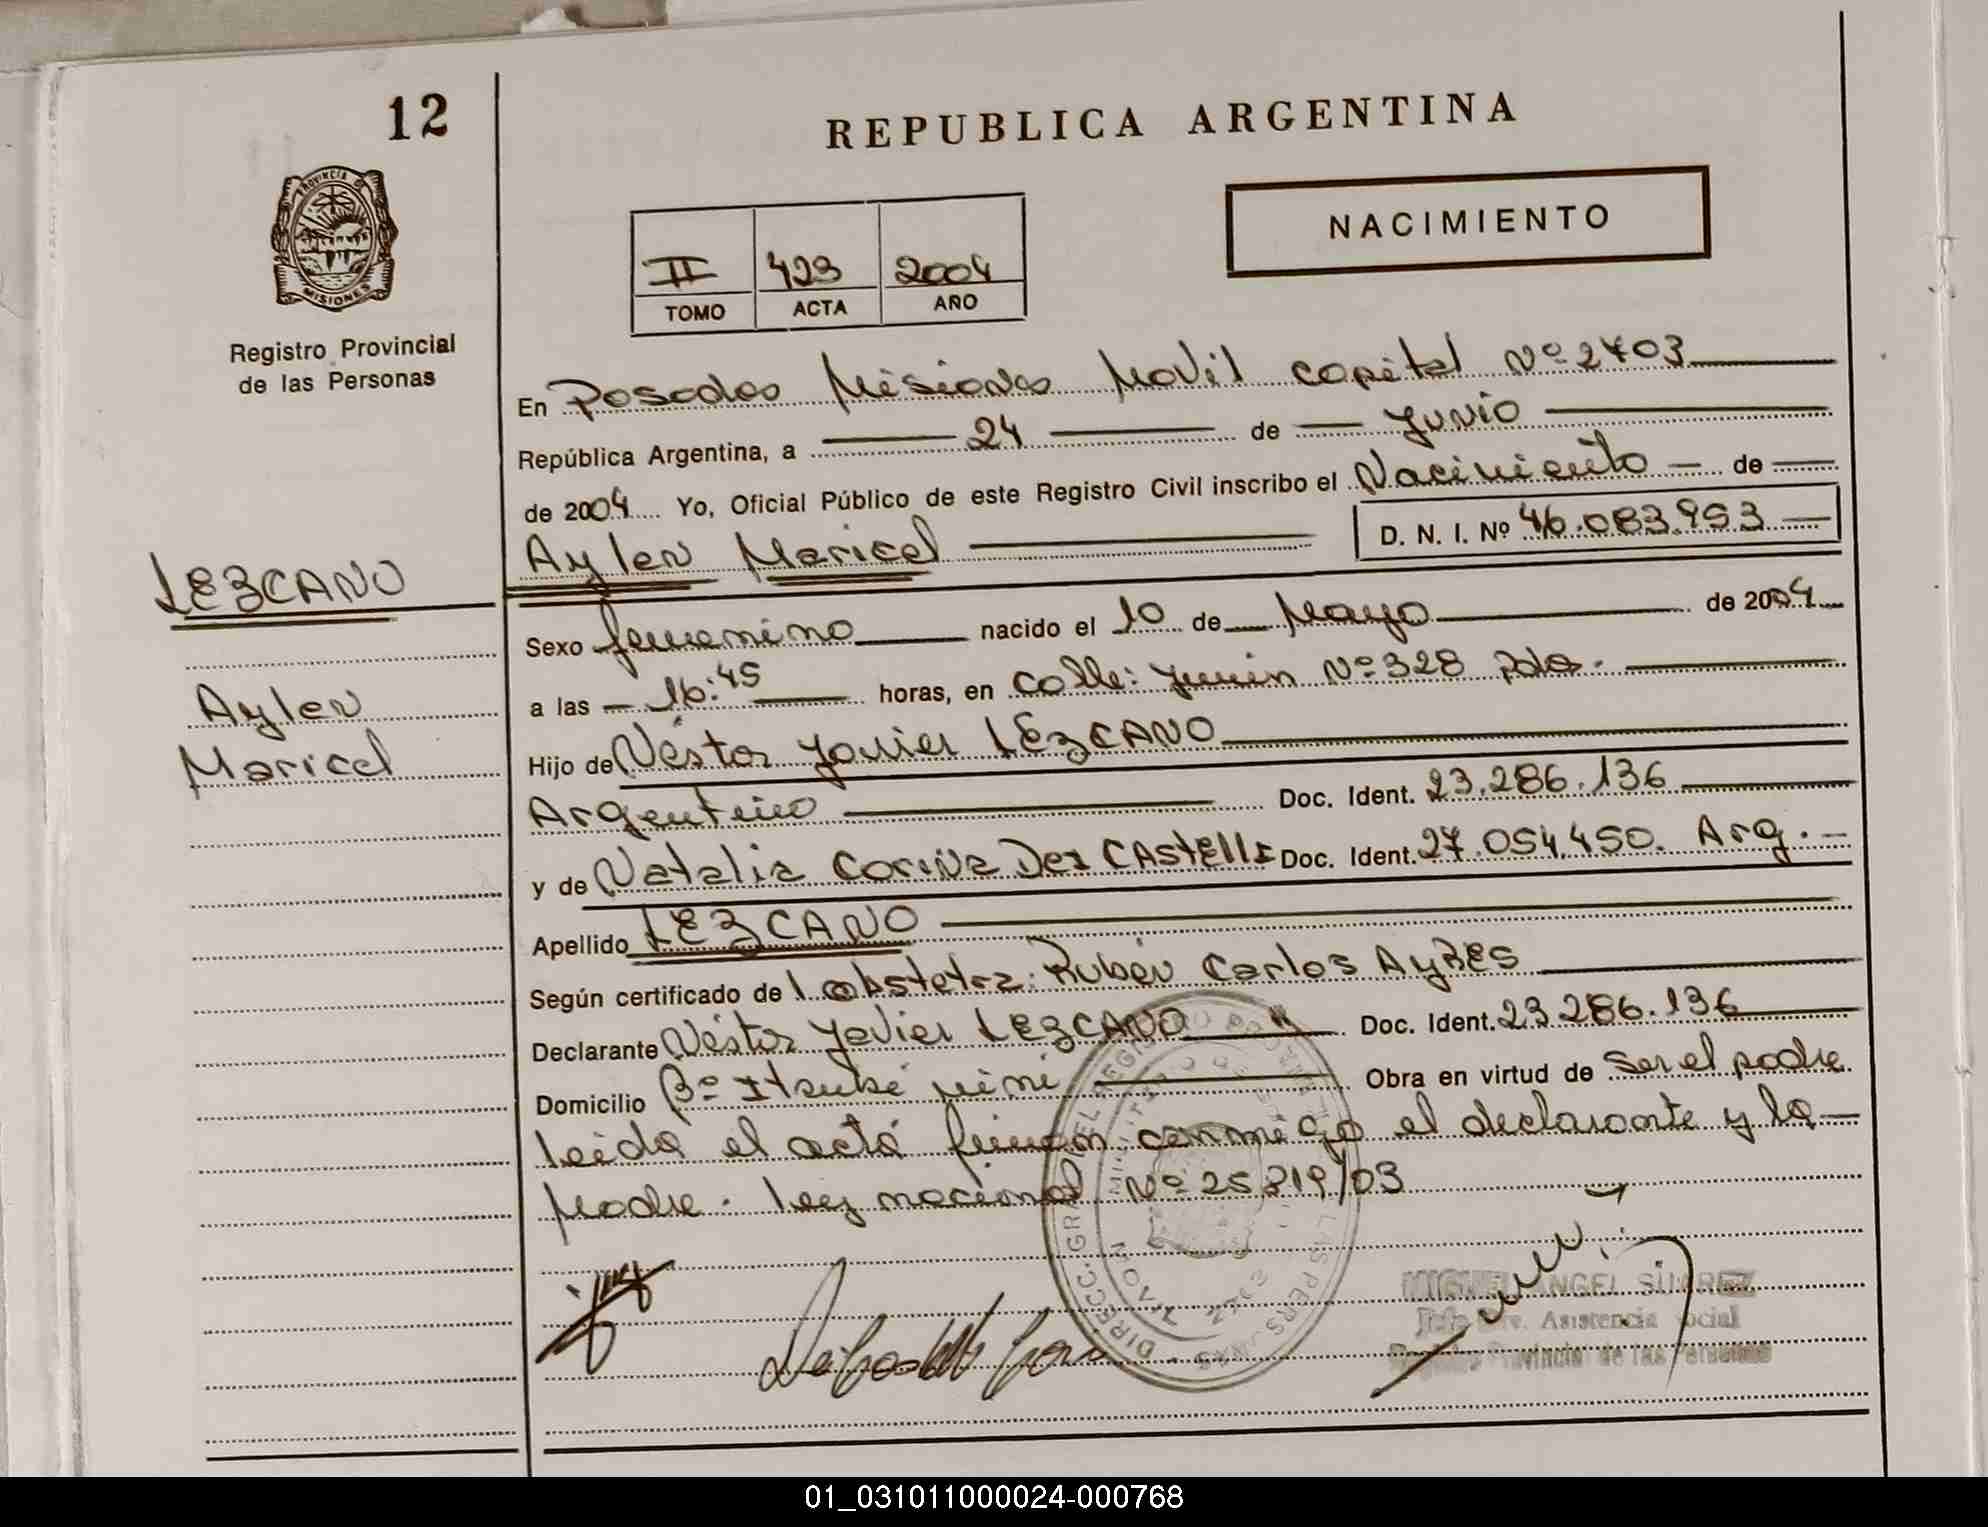 12
REPUBLICA ARGENTINA
PROVINCIA DE
MISIONES
Registro Provincial
de las Personas
NACIMIENTO
II 423 2004
TOMO ACTA AÑO
En Posadas Misiones Movil Capital Nº 2703
República Argentina, a 24 de Junio
de 2004 Yo, Oficial Público de este Registro Civil inscribo el Nacimiento de
Aylen Maricel D. N. I. Nº 46.083.953
LEZCANO
Aylen
Maricel
Sexo femenino nacido el 10 de Mayo de 2004
a las 16:45 horas, en Calle: Junin Nº 328 Pdas.
Hijo de Néstor Javier LEZCANO
Argentino Doc. Ident. 23.286.136
y de Natalia Corina Del CAstelli Doc. Ident. 27.054.450. Arg.
Apellido LEZCANO
Según certificado de Rubén Carlos AyRES
Declarante Néstor Javier LEZCANO Doc. Ident. 23 286.136
Domicilio Bº Itaembé mini Obra en virtud de Ser el padre
leida el acta firman conmigo el declarante y la
Madre. Ley nacional Nº 25819/03
MIGUEL ANGEL SUAREZ
Asistencia Social
Registro Provincial de las Personas
01_031011000024-000768